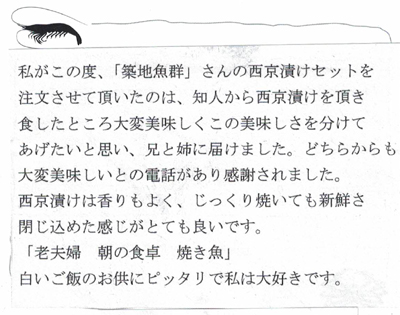 私がこの度、「築地魚群」さんの西京漬けセットを
注文させて頂いたのは、知人から西京漬けを頂き
食したところ大変美味しくこの美味しさを分けて
あげたいと思い、兄と姉に届けました。どちらからも
大変美味しいとの電話があり感謝されました。
西京漬けは香りもよく、じっくり焼いても新鮮さ
閉じ込めた感じがとても良いです。
「老夫婦　朝の食卓　焼き魚」
白いご飯のお供にピッタリで私は大好きです。